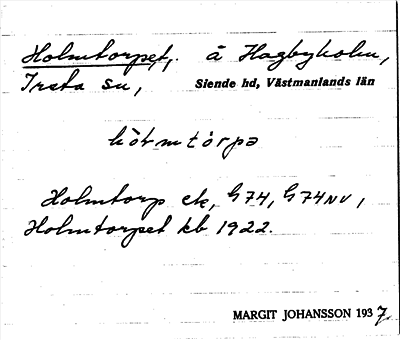 Holmtorpet, å Hagbyholm,
Irsta sn, Siende hd, Västmanlands län
hòlmtórpə
Holmtorp ek, G 74, G 74NV,
Holmtorpet kb 1922.
MARGIT JOHANSSON 1937.